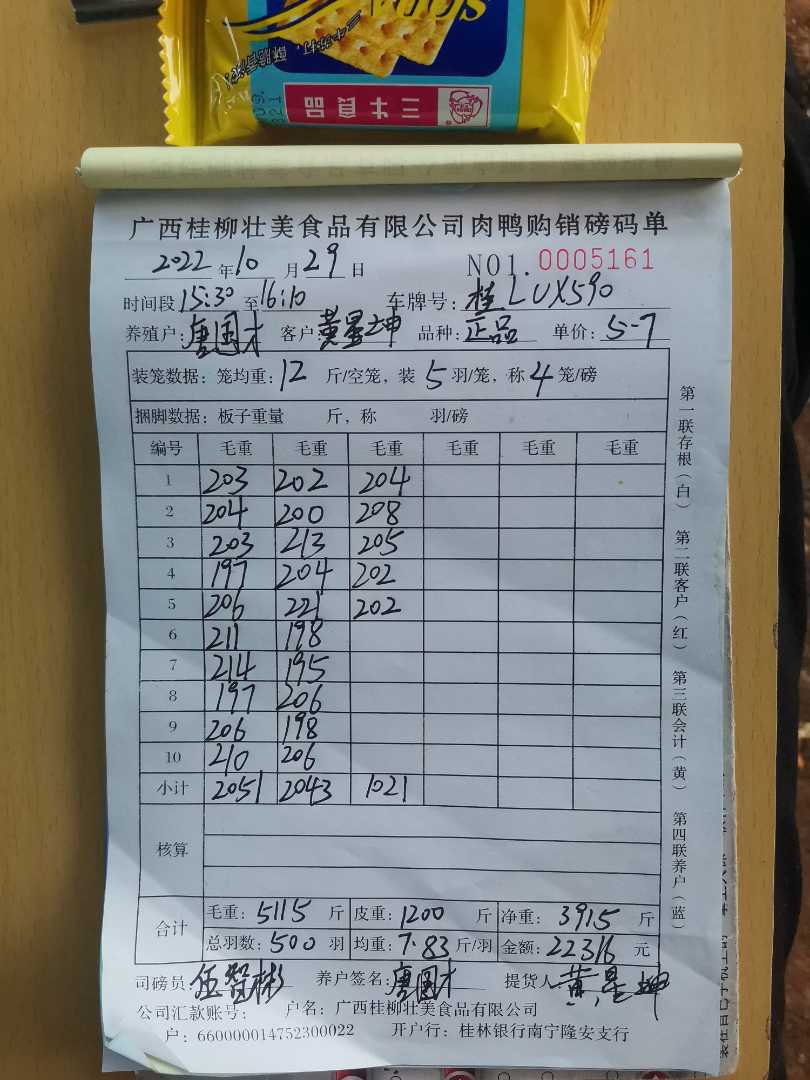 三牛食品
广西桂柳壮美食品有限公司肉鸭购销磅码单
2022 年 10 月 29 日 NO1. 0005161
时间段 15:30 至 16:10 车牌号: 桂LUX590
养殖户: 唐国才 客户: 黄星坤 品种: 正品 单价: 5-7
装笼数据: 笼均重: 12 斤/空笼, 装 5 羽/笼, 称 4 笼/磅
捆脚数据: 板子重量 斤, 称 羽/磅
编号 毛重 毛重 毛重 毛重 毛重 毛重
1 203 202 204
2 204 200 208
3 203 213 205
4 197 204 202
5 206 221 202
6 211 198
7 214 195
8 197 206
9 206 198
10 210 206
小计 2051 2043 1021
核算
合计
毛重: 5115 斤 皮重: 1200 斤 净重: 3915 斤
总羽数: 500 羽 均重: 7.83 斤/羽 金额: 22316 元
司磅员: 伍智彬 养户签名: 唐国才 提货人: 黄星坤
公司汇款账号: 户名: 广西桂柳壮美食品有限公司
户: 660000014752300022 开户行: 桂林银行南宁隆安支行
第一联存根(白) 第二联客户(红) 第三联会计(黄) 第四联养户(蓝)